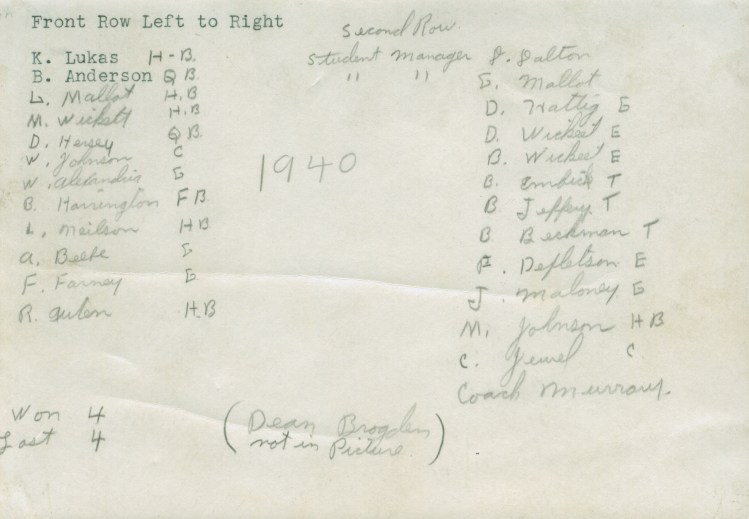 Front Row Left to Right
K. Lukas H-B.
B. Anderson Q B.
L. Mallot H.B
M. Wickett H.B
D. Hersey Q B.
W. Johnson C
W. Alexandria G
B. Harrington F B
L. Neilson H B
A. Beebe G
F. Farney G.
R. H.B
Won 4
Lost 4
1940
(Dean Brogden
not in Picture)
Second Row.
Student Manager D. Dalton
" " G. Mallot
D. Trattig G
D. Wickert E
B. Wickert E
B. Embick T
B Jeffery T
B Beckman T
P. Depletson E
J. Maloney G
M. Johnson H B
C. Jewel C
Coach Murray.